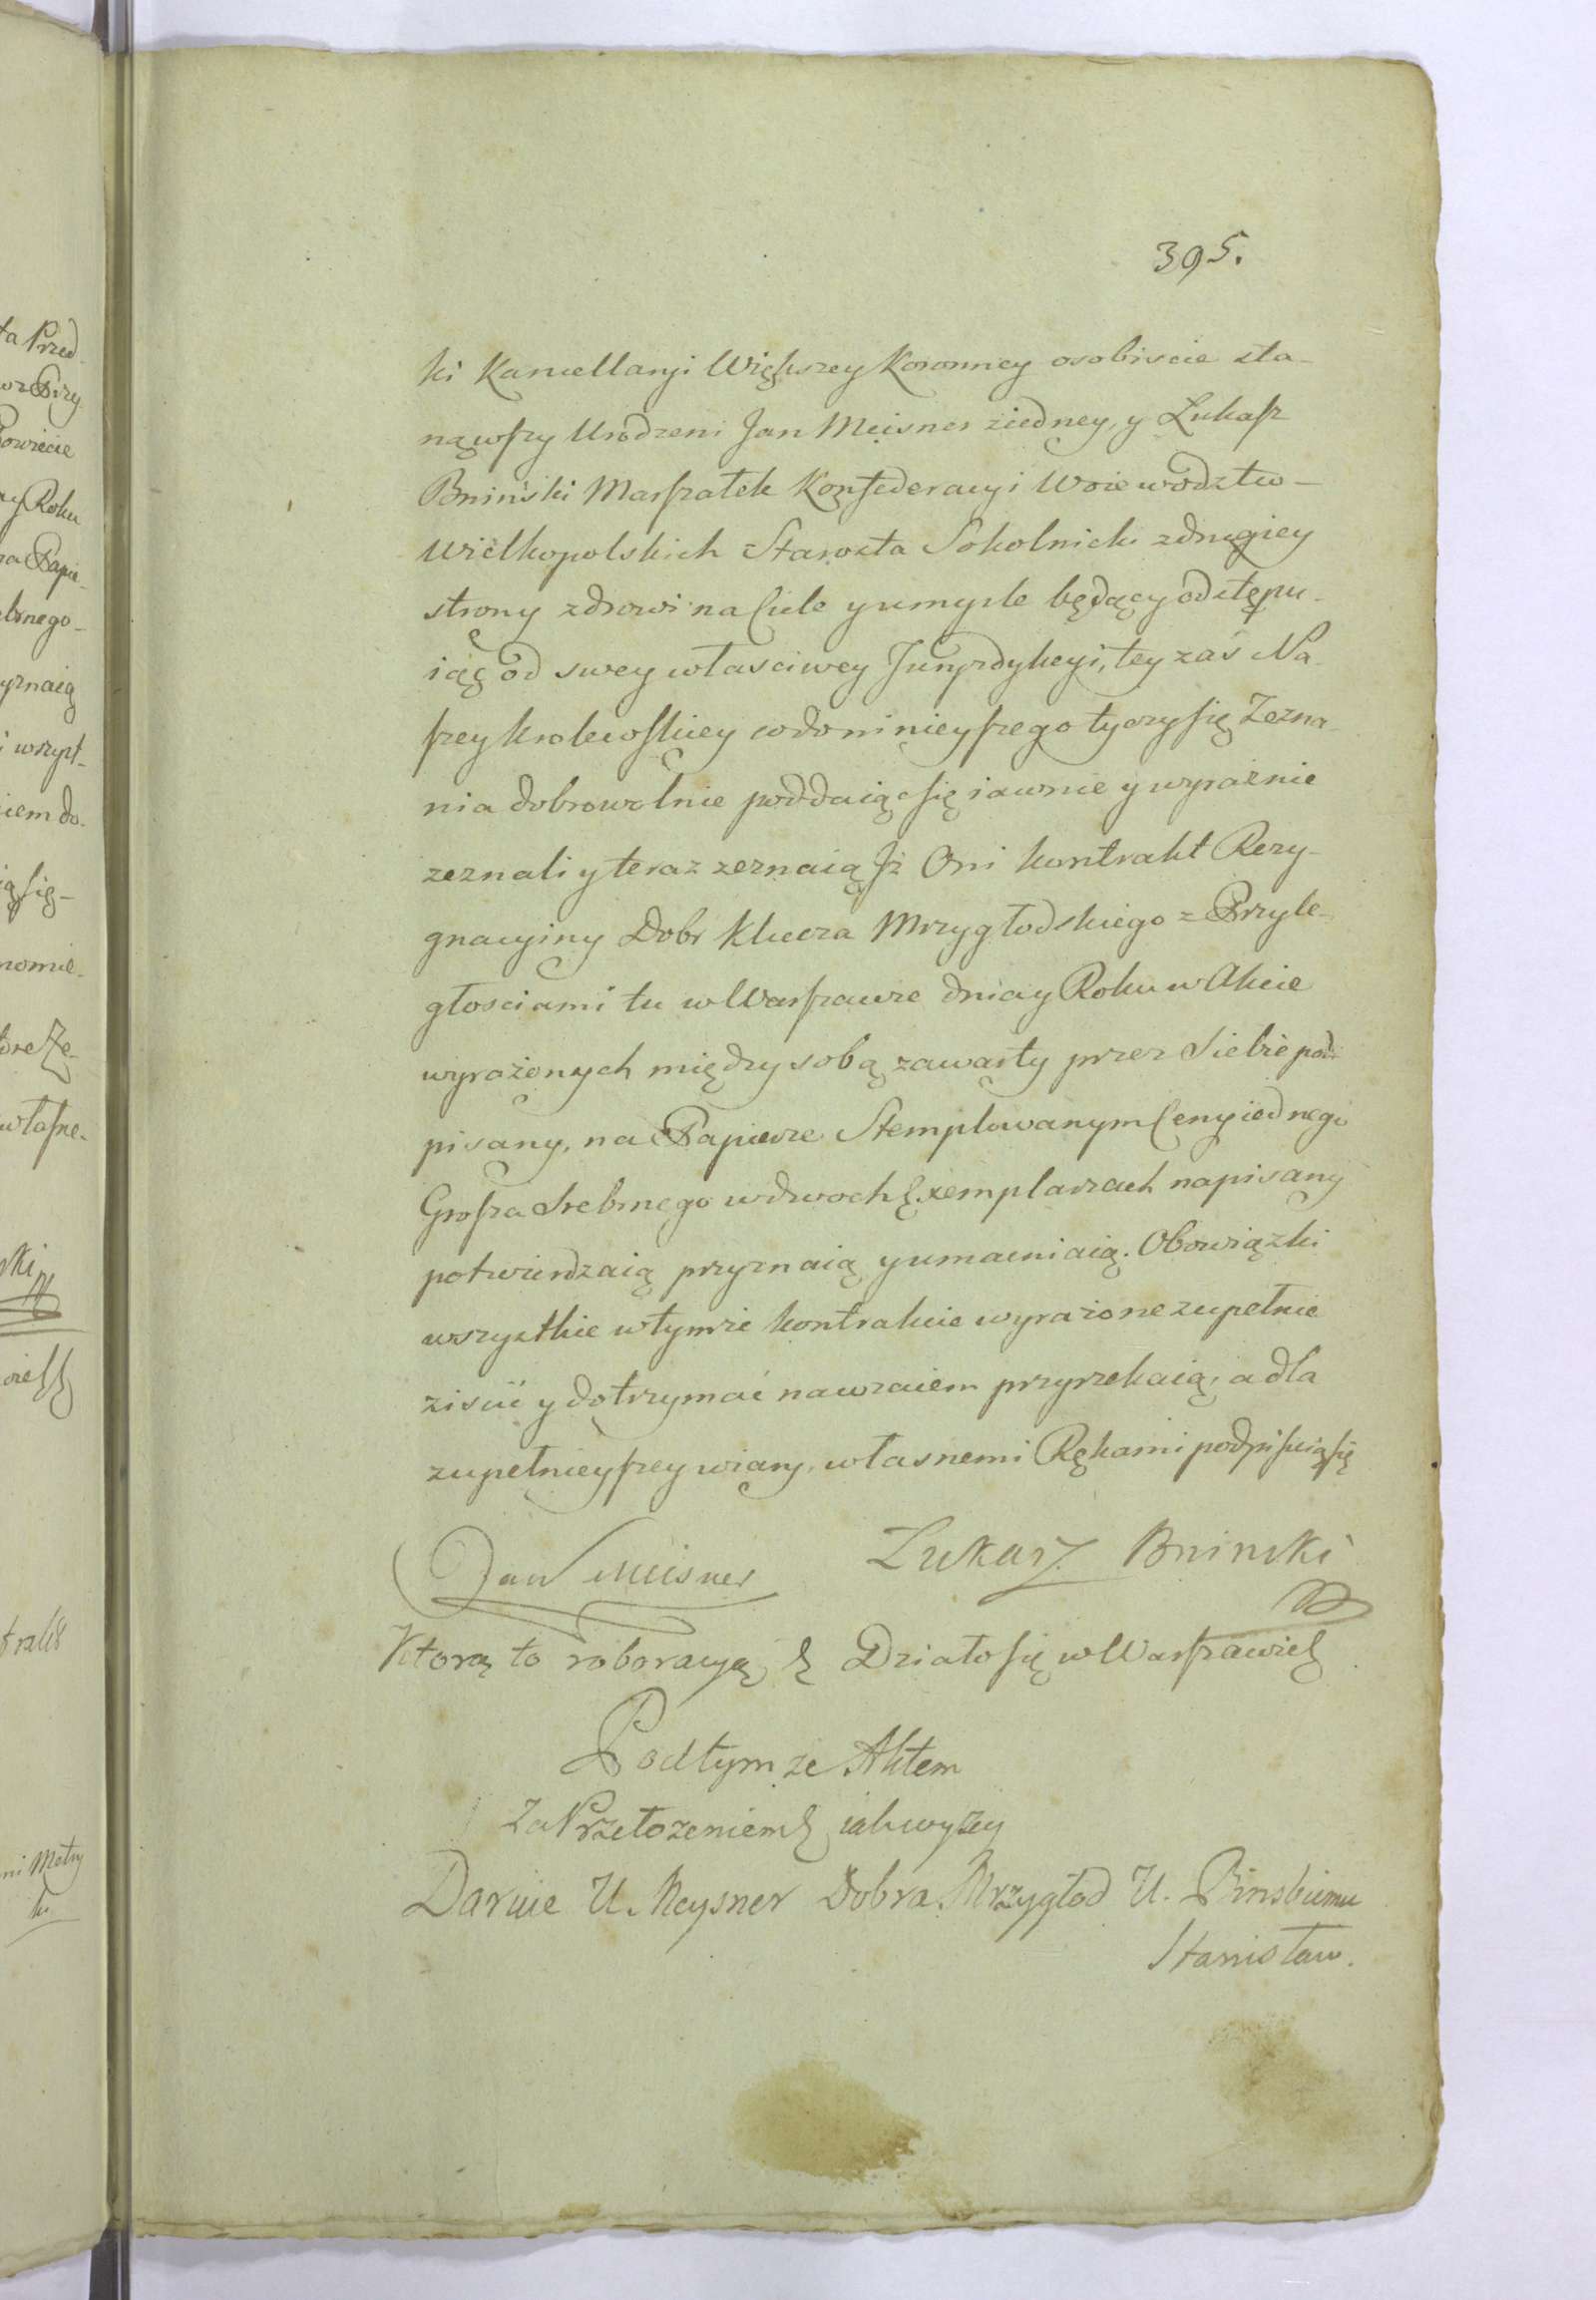 395.
ki Kancellaryi Większey Koronney osobiscie sta-
nąwszy Urodzeni Jan Meisner ziedney, y Lukasz
Bniński Marszałek Konfederacyi Woiewodztw-
Wielkopolskich Starosta Sokolnicki zdrugiey
strony zdrowi na Ciele y umysle będący odstępu-
iąc od swey własciwey Juryzdykcyi, tey zas Na-
szey krolewskiey codoninieyszego tyczy się Zezna-
nia dobrowolnie poddaiąc się iawnie y wyraźnie
zeznali y teraz zeznaią Jż Oni kontrakt Rezy-
gnacyiny Dobr Klucza Mrzygłodskiego z Przyle-
głosciami tu w Warszawie dnia y Roku w Akcie
wyrażonych między sobą zawarty przez Siebie pod-
pisany, na Papierze Stemplowanym Ceny iednego
Grosza Srebrnego wdwoch Exemplarzach napisany
potwierdzaią przyznaią y umacniaią. Obowiązki
wszystkie wtymże kontrakcie wyrażone zupełnie
ziscić y dotrzymać nawzaiem przyrzekaią, a dla
zupełnieyszey wiary własnemi Rękami podpisuią się
Jan Meisner Lukasz Bninski
Ktorą to roboracyą Działo się w Warszawie
Pod tymze Aktem
Za Przełozeniem iak wyzey
Daruie U. Meysner Dobra Mrzygłod U. Binskiemu
Stanisław.
ta Przed-
Powiecie
Roku
Papie-
yznaią
i wszyst-
iem do-
własne-